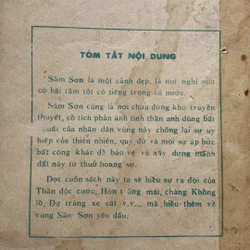 TÓM TẮT NỘI DUNG
Sầm Sơn là một cảnh đẹp, là nơi nghỉ mát
có bãi tắm tốt có tiếng trong cả nước.
Sầm Sơn cũng là nơi chứa đựng kho truyền
thuyết, cổ tích phản ánh tinh thần anh dũng bất
khuất của nhân dân vùng này chống lại sự uy
hiếp của thiên nhiên, quỷ dữ và mọi sự áp bức
bất công khác để bảo vệ và xây dựng mảnh
đất này từ thuở hoang sơ.
Đọc cuốn sách này ta sẽ hiểu sự ra đời của
Thần độc cước, Hòn trống mái, chàng Khổng
lồ, Dã tràng xe cát v.v... mà hiểu thêm về
vùng Sầm Sơn yêu dấu.